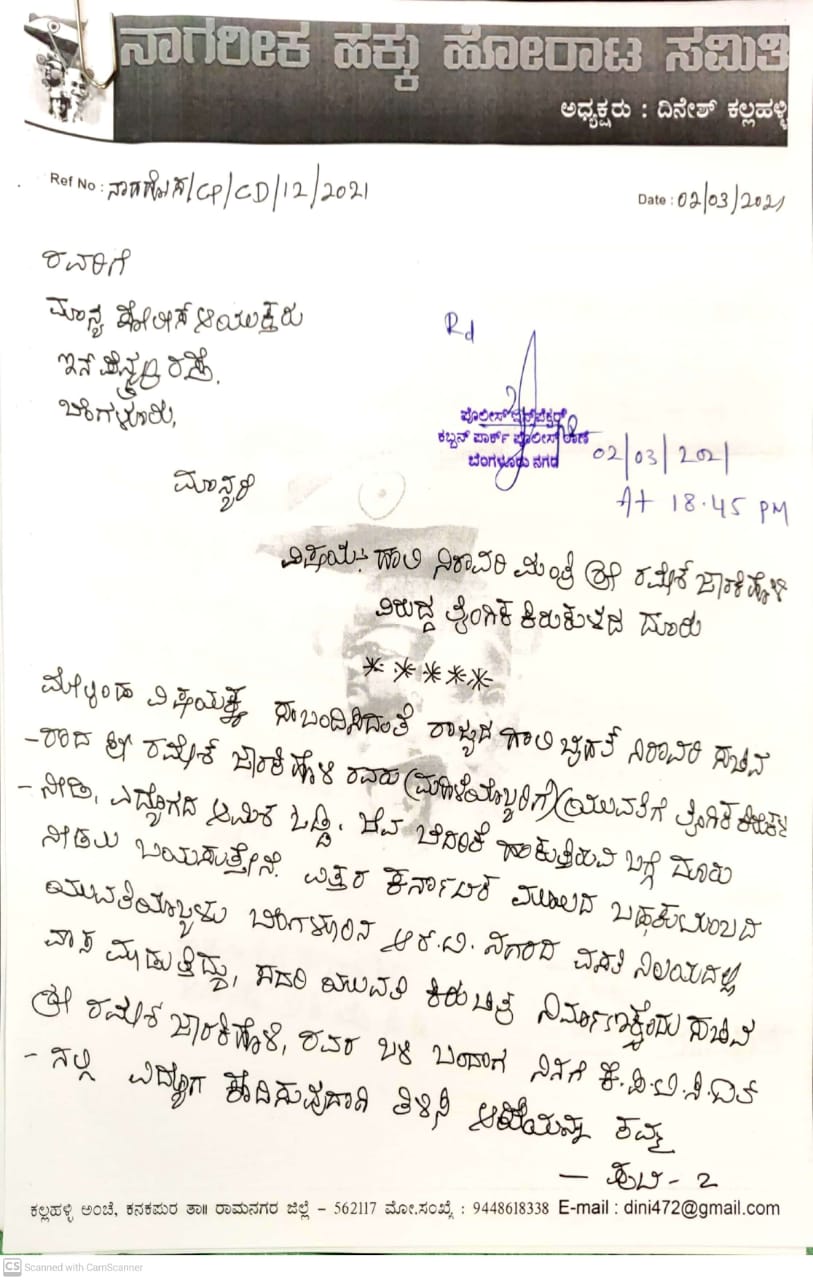 ನಾಗರೀಕ ಹಕ್ಕು ಹೋರಾಟ ಸಮಿತಿ
ಅಧ್ಯಕ್ಷರು : ದಿನೇಶ್ ಕಲ್ಲಹಳ್ಳಿ
Ref No : ನಾಹಹೋಸ/CP/CD/12/2021
Date : 02/03/2021
ರವರಿಗೆ
ಮಾನ್ಯ ಪೋಲೀಸ್ ಆಯುಕ್ತರು
ಇನ್ ಫೆನ್ಟ್ರಿ ರಸ್ತೆ.
ಬೆಂಗಳೂರು,
Rd
ಪೊಲೀಸ್ ಇನ್ಸ್‌ಪೆಕ್ಟರ್
ಕಬ್ಬನ್ ಪಾರ್ಕ್ ಪೊಲೀಸ್ ಠಾಣೆ
ಬೆಂಗಳೂರು ನಗರ
02/03/2021
At 18.45 PM
ಮಾನ್ಯರೆ
ವಿಷಯ: ಹಾಲಿ ನಿರಾವರಿ ಮಂತ್ರಿ ಶ್ರೀ ರಮೇಶ ಜಾರಕಿಹೊಳಿ
ವಿರುದ್ದ ಲೈಂಗಿಕ ಕಿರುಕುಳದ ದೂರು
*****
ಮೇಳ್ಕಂಡ ವಿಷಯಕ್ಕೆ ಸಂಬಂದಿಸಿದಂತೆ ರಾಜ್ಯದ ಹಾಲಿ ಬೃಹತ್ ನಿರಾವರಿ ಸಚಿವ
-ರಾದ ಶ್ರೀ ರಮೇಶ ಜಾರಕಿಹೊಳಿ ರವರು (ಮಹಿಳೆಯೊಬ್ಬರಿಗೆ) (ಯುವತಿಗೆ ಲೈಂಗಿಕ ಕಿರುಕುಳ
- ನೀಡಿ, ಎದ್ಯೋಗದ ಆಮಿಶ ಒಡ್ಡಿ. ಜೀವ ಬೆದರಿಕೆ ಹಾಕುತ್ತಿರುವ ಬಗ್ಗೆ ದೂರು
ನೀಡಲು ಬಯಸುತ್ತೇನೆ. ಎತ್ತರ ಕರ್ನಾಟಕ ಮೂಲದ ಬಡಕುಟುಂಬದ
ಯುವತಿಯೊಬ್ಬಳು ಬೆಂಗಳೂರಿನ ಆರ.ಟಿ. ನಗರದ ವಸತಿ ನಿಲಯದಲ್ಲಿ
ವಾಸ ಮಾಡುತ್ತಿದ್ದು, ಸದರಿ ಯುವತಿ ಕಿರು ಚಿತ್ರ ನಿರ್ಮಾಣಕ್ಕೆಂದು ಸಚಿವ
ಶ್ರೀ ರಮೇಶ ಜಾರಕಿಹೊಳಿ, ರವರ ಬಳಿ ಬಂದಾಗ ನಿನಗೆ ಕೆ.ಪಿ.ಟಿ.ಸಿ.ಎಲ್
- ನಲ್ಲಿ ಎದ್ಯೋಗ ಕೊಡಿಸುವುದಾಗಿ ತಿಳಿಸಿ ಆಕೆಯನ್ನು ತನ್ನ
— ಪುಟ - 2
ಕಲ್ಲಹಳ್ಳಿ ಅಂಚೆ, ಕನಕಪುರ ತಾ॥ ರಾಮನಗರ ಜಿಲ್ಲೆ - 562117 ಮೋ.ಸಂಖ್ಯೆ : 9448618338 E-mail : dini472@gmail.com
CS Scanned with CamScanner